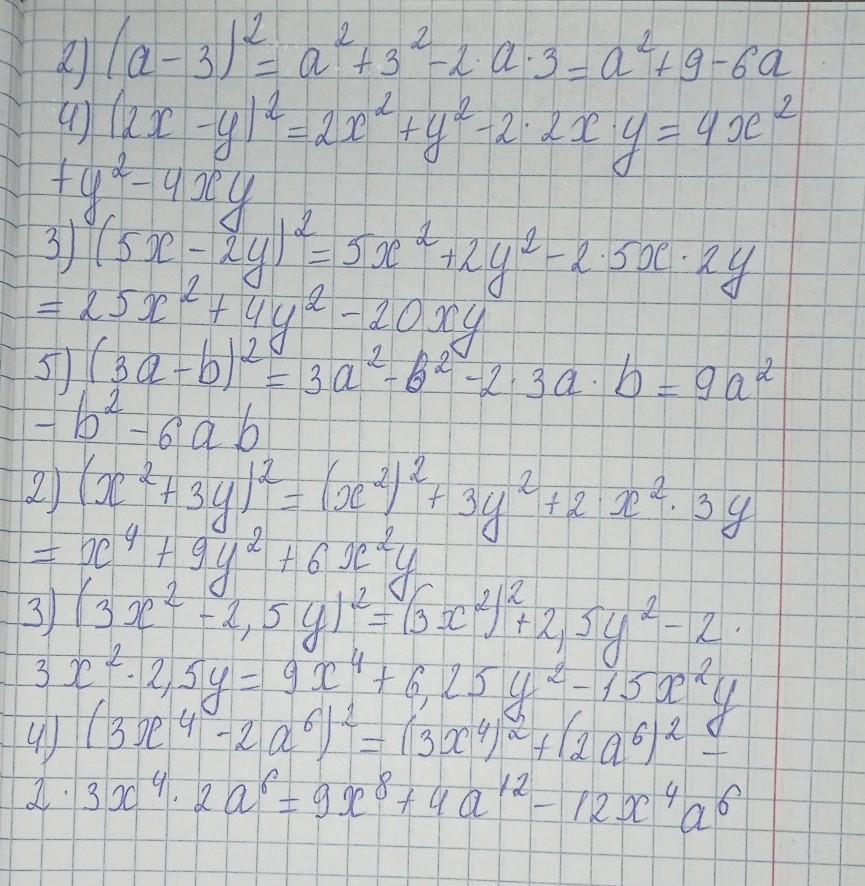 2) (a-3)² = a² + 3² - 2·a·3 = a² + 9 - 6a
4) (2x - y)² = 2x² + y² - 2·2x·y = 4x²
+ y² - 4xy
3) (5x - 2y)² = 5x² + 2y² - 2·5x·2y
= 25x² + 4y² - 20xy
5) (3a - b)² = 3a² - b² - 2·3a·b = 9a²
- b² - 6ab
2) (x² + 3y)² = (x²)² + 3y² + 2·x²·3y
= x⁴ + 9y² + 6x²y
3) (3x² - 2,5y)² = (3x²)² + 2,5y² - 2·
3x²·2,5y = 9x⁴ + 6,25y² - 15x²y
4) (3x⁴ - 2a⁶)² = (3x⁴)² + (2a⁶)² -
2·3x⁴·2a⁶ = 9x⁸ + 4a¹² - 12x⁴a⁶